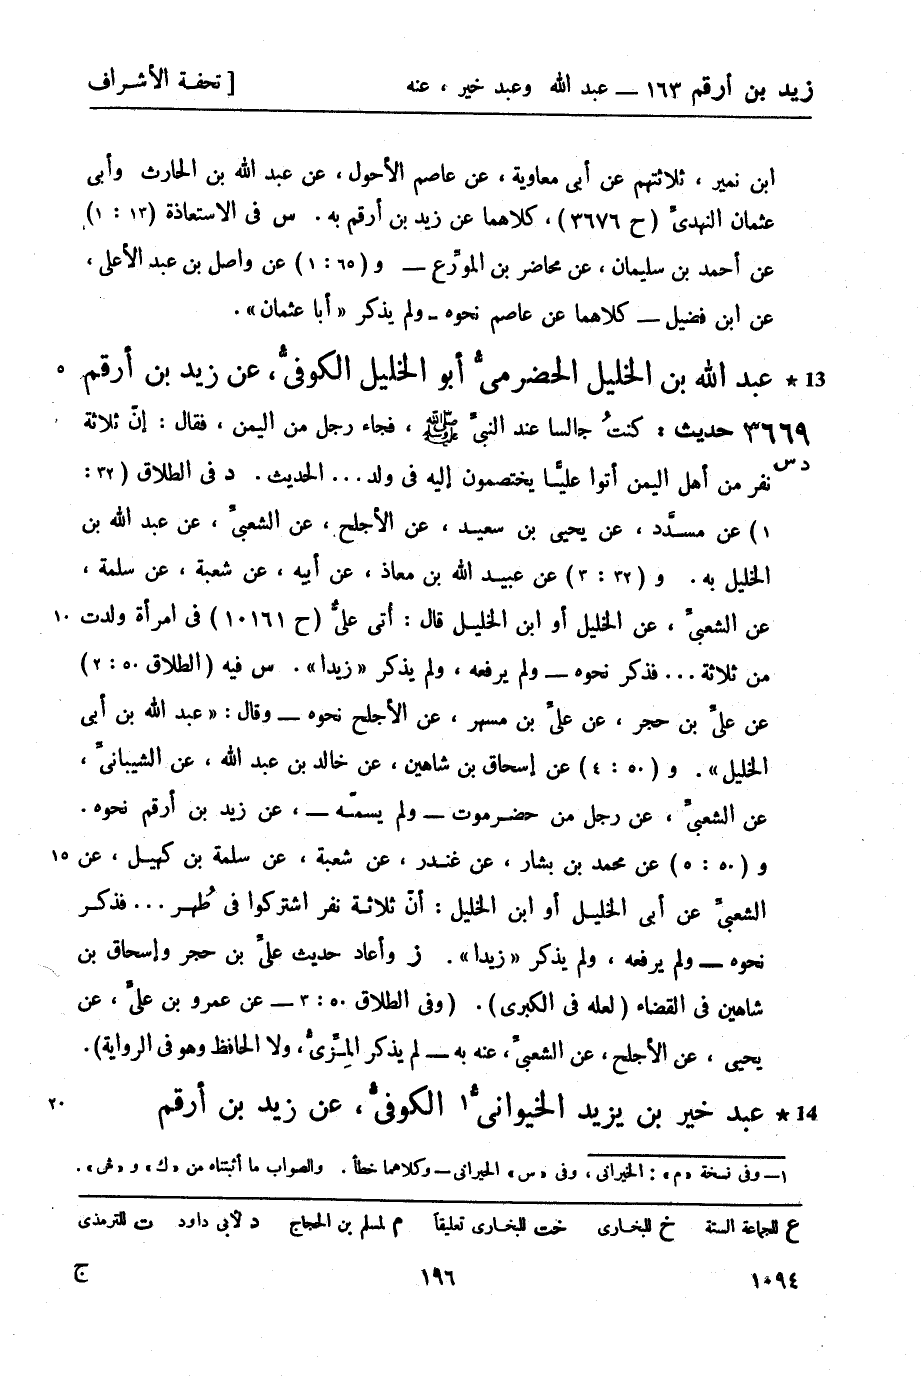 زيد بن أرقم ١٦٣ ــ عبد الله وعبد خير ، عنه [ تحفة الأشراف
ابن نمير ، ثلاثتهم عن أبى معاوية ، عن عاصم الأحول ، عن عبد الله بن الحارث وأبى
عثمان النهدىّ (ح ٣٦٧٦) ، كلاهما عن زيد بن أرقم به . س فى الاستعاذة (١٣ : ١)
عن أحمد بن سليمان ، عن محاضر بن المورِّع ــ و (٦٥ : ١) عن واصل بن عبد الأعلى ،
عن ابن فضيل ــ كلاهما عن عاصم نحوه ــ ولم يذكر «أبا عثمان» .
13 * عبد الله بن الخليل الحضرمىُّ أبو الخليل الكوفىُّ ، عن زيد بن أرقم ٥
٣٦٦٩ حديث : كنتُ جالسا عند النبىّ ﷺ ، فجاء رجل من اليمن ، فقال : إنّ ثلاثة
د س
نفر من أهل اليمن أتوا عليًّا يختصمون إليه فى ولد ... الحديث . د فى الطلاق (٣٢ :
١) عن مسدَّد ، عن يحيى بن سعيد ، عن الأجلح ، عن الشعبىّ ، عن عبد الله بن
الخليل به . و (٣٢ : ٣) عن عبيد الله بن معاذ ، عن أبيه ، عن شعبة ، عن سلمة ،
عن الشعبىّ ، عن الخليل أو ابن الخليل قال : أتى علىُّ (ح ١٠١٦١) فى امرأة ولدت ١٠
من ثلاثة ... فذكر نحوه ــ ولم يرفعه ، ولم يذكر «زيدا» . س فيه (الطلاق ٥٠ : ٢)
عن علىّ بن حجر ، عن علىّ بن مسهر ، عن الأجلح نحوه ــ وقال : «عبد الله بن أبى
الخليل» . و (٥٠ : ٤) عن إسحاق بن شاهين ، عن خالد بن عبد الله ، عن الشيبانىّ ،
عن الشعبىّ ، عن رجل من حضرموت ــ ولم يسمّه ــ ، عن زيد بن أرقم نحوه .
و (٥٠ : ٥) عن محمد بن بشار ، عن غندر ، عن شعبة ، عن سلمة بن كهيل ، عن ١٥
الشعبىّ عن أبى الخليل أو ابن الخليل : أنّ ثلاثة نفر اشتركوا فى طُهر ... فذكر
نحوه ــ ولم يرفعه ، ولم يذكر «زيدا» . ز وأعاد حديث علىّ بن حجر وإسحاق بن
شاهين فى القضاء (لعله فى الكبرى) . (وفى الطلاق ٥٠ : ٣ ــ عن عمرو بن علىّ ، عن
يحيى ، عن الأجلح ، عن الشعبىّ ، عنه به ــ لم يذكر المِزّىُّ ، ولا الحافظ وهو فى الرواية) .
14 * عبد خير بن يزيد الخيوانىُّ١ الكوفىُّ ، عن زيد بن أرقم ٢٠
١ــ وفى نسخة «م» : الخيرانى ، وفى «س» الحيرانى ــ وكلاهما خطأ . والصواب ما أثبتناه من «ك» و «ش» .
ع للجماعة الستة خ للبخارى خت للبخارى تعليقاً م لمسلم بن الحجاج د لأبى داود ت للترمذى
١٠٩٤ ١٩٦ ج